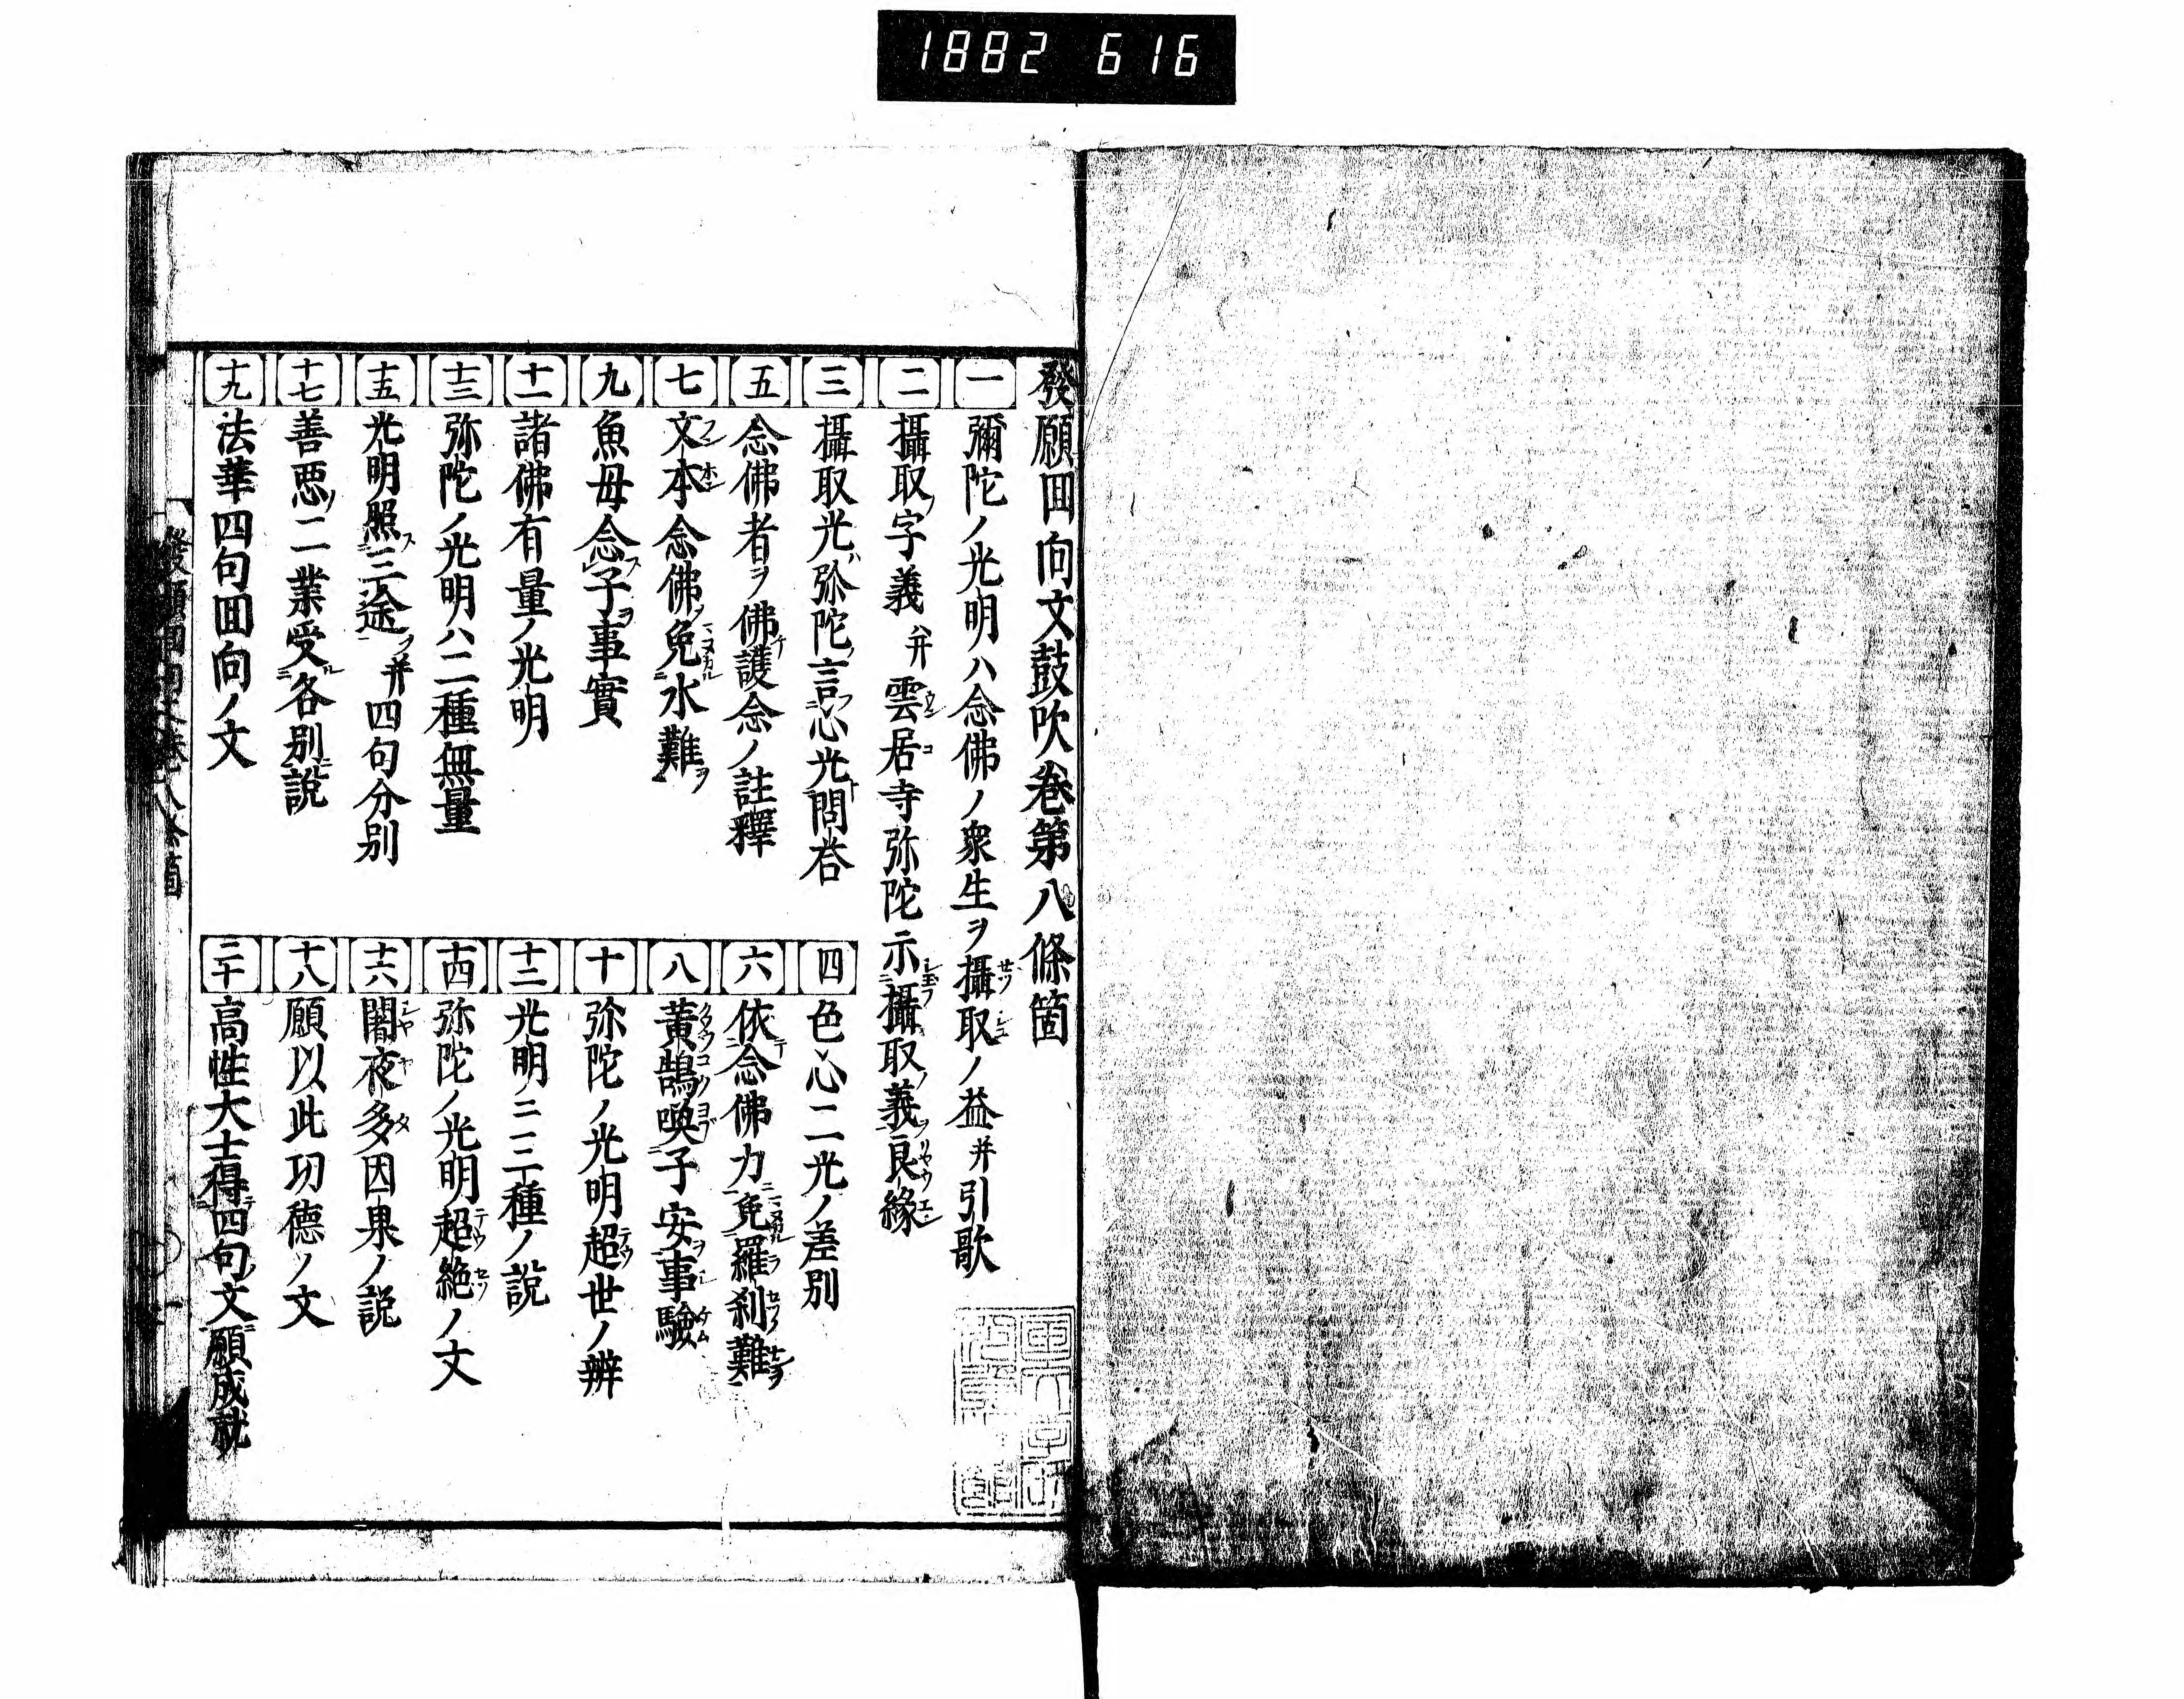 1882 616
發願回向文鼓吹卷第八條箇
一 彌陀ノ光明ハ念佛ノ衆生ヲ攝取ノ益并引歌
二 攝取ノ字義并雲居寺弥陀示攝取ノ義ヲ良緣
三 攝取光弥陀ノ言心光問答
四 色心二光ノ差別
五 念佛者ヲ佛護念ノ註釋
六 依念佛力免羅刹難
七 文本念佛ノ免水難ヲ
八 黃鵠喚子安事驗
九 魚母念子ヲ事實
十 弥陀ノ光明超世ノ辨
十一 諸佛有量ノ光明
十二 光明ニ三種ノ說
十三 弥陀ノ光明ハ二種無量
十四 弥陀ノ光明超絶ノ文
十五 光明照三途ヲ并四句分別
十六 闍夜多因果ノ說
十七 善悪ノ二業受各別說
十八 願以此功德ノ文
十九 法華四句回向ノ文
二十 高性大士得四句文願成就